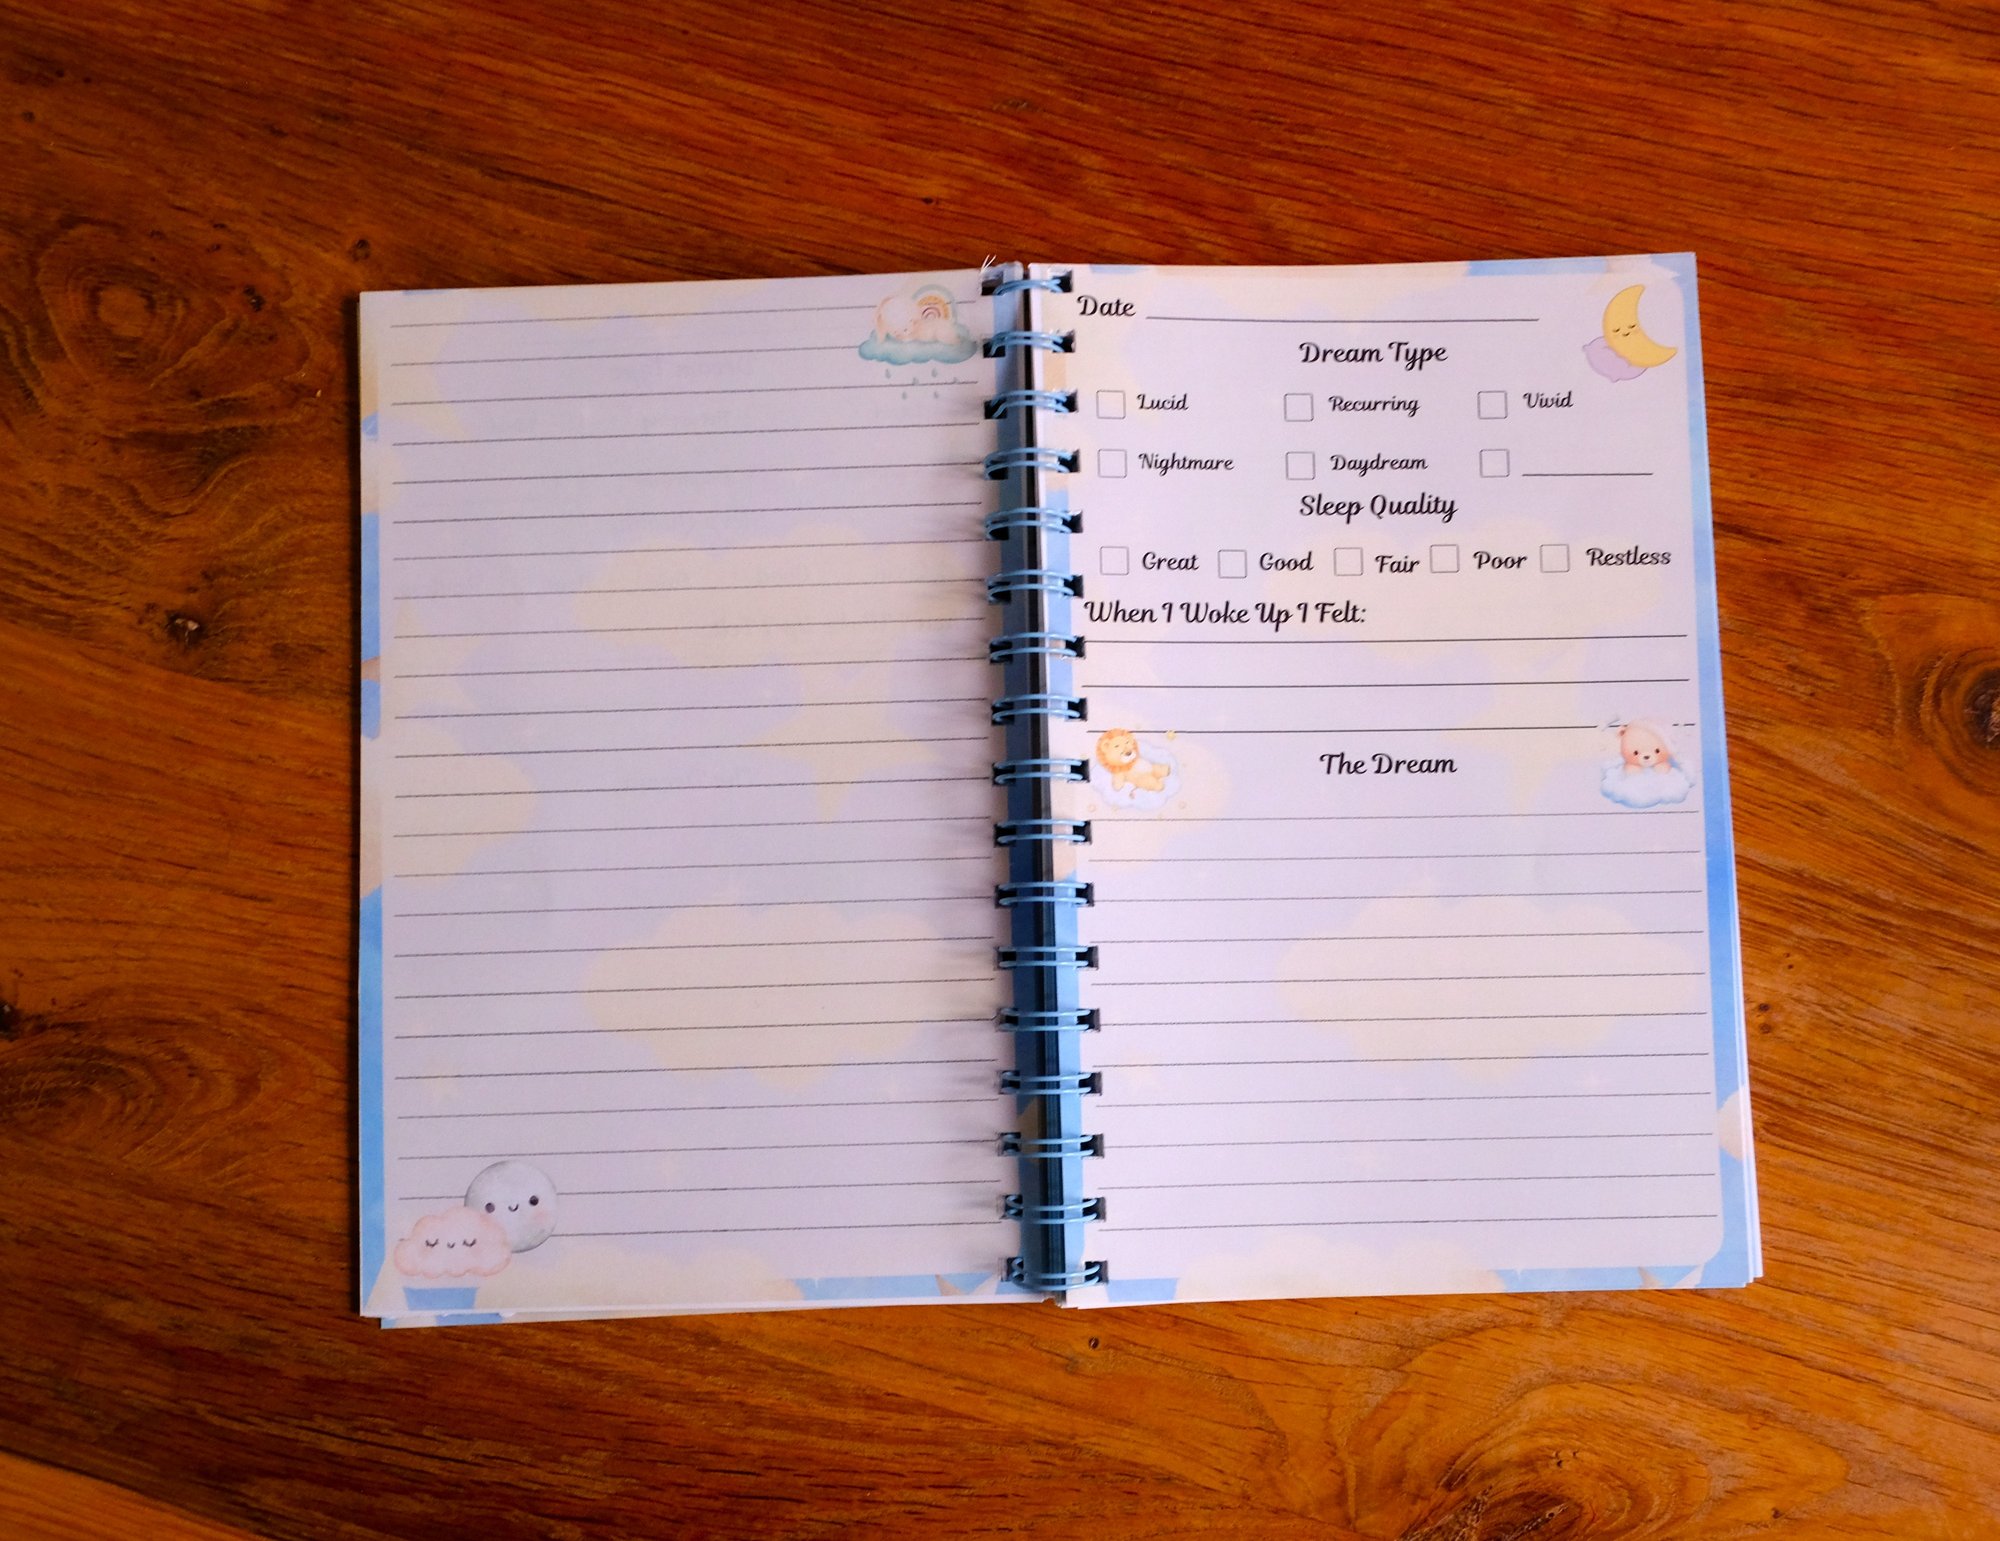 Date
Dream Type
Lucid Recurring Vivid
Nightmare Daydream
Sleep Quality
Great Good Fair Poor Restless
When I Woke Up I Felt:
The Dream